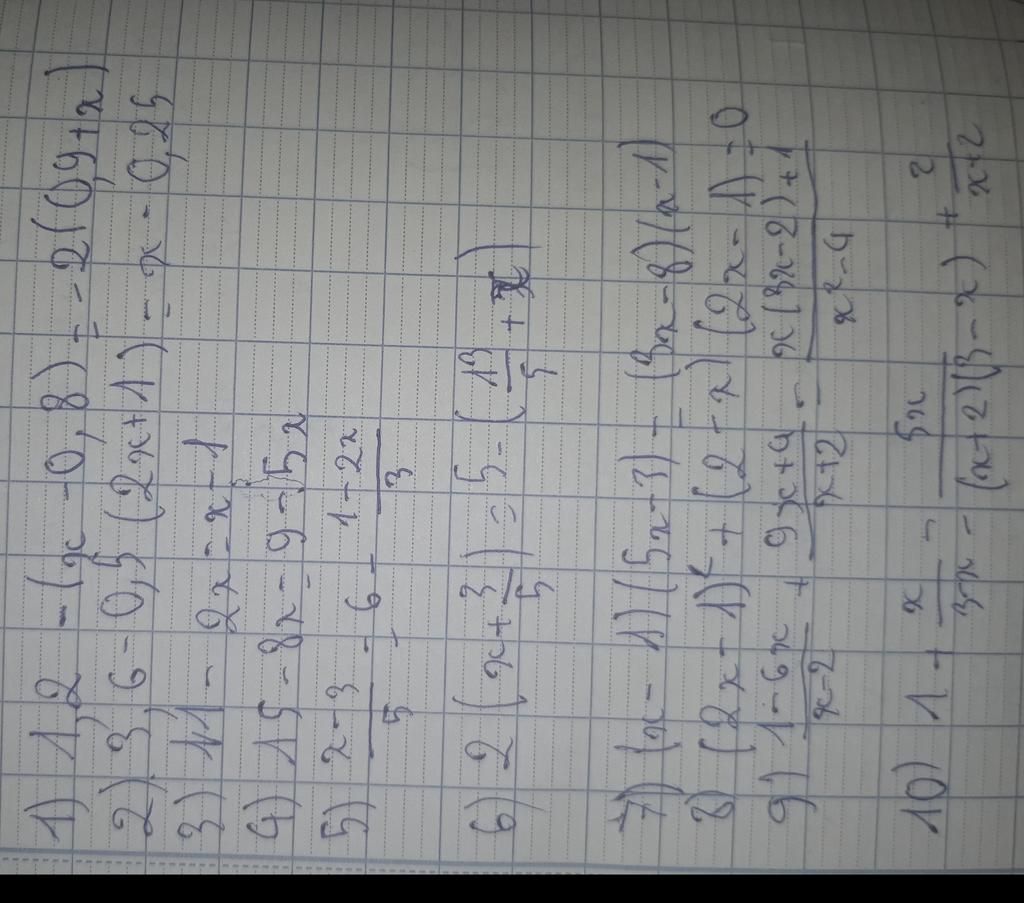 1) 1,2 -(x -0,8) = -2(0,9+x)
2) 3,6 - 0,5 (2x+1) = x - 0,25
3) 11 - 2x = x - 1
4) 15 - 8x = 9 - 5x
5) \frac{x-3}{5} = 6 - \frac{1-2x}{3}
6) 2 (x + \frac{3}{5}) = 5 - (\frac{13}{5} + x)
7) (x - 1)(5x-3) = (3x-8)(x-1)
8) (2x - 1)² + (2 - x)(2x - 1) = 0
9) \frac{1-6x}{x-2} + \frac{9x+4}{x+2} = \frac{x(3x-2)+1}{x²-4}
10) 1 + \frac{x}{3-x} = \frac{5x}{(x+2)(3-x)} + \frac{2}{x+2}